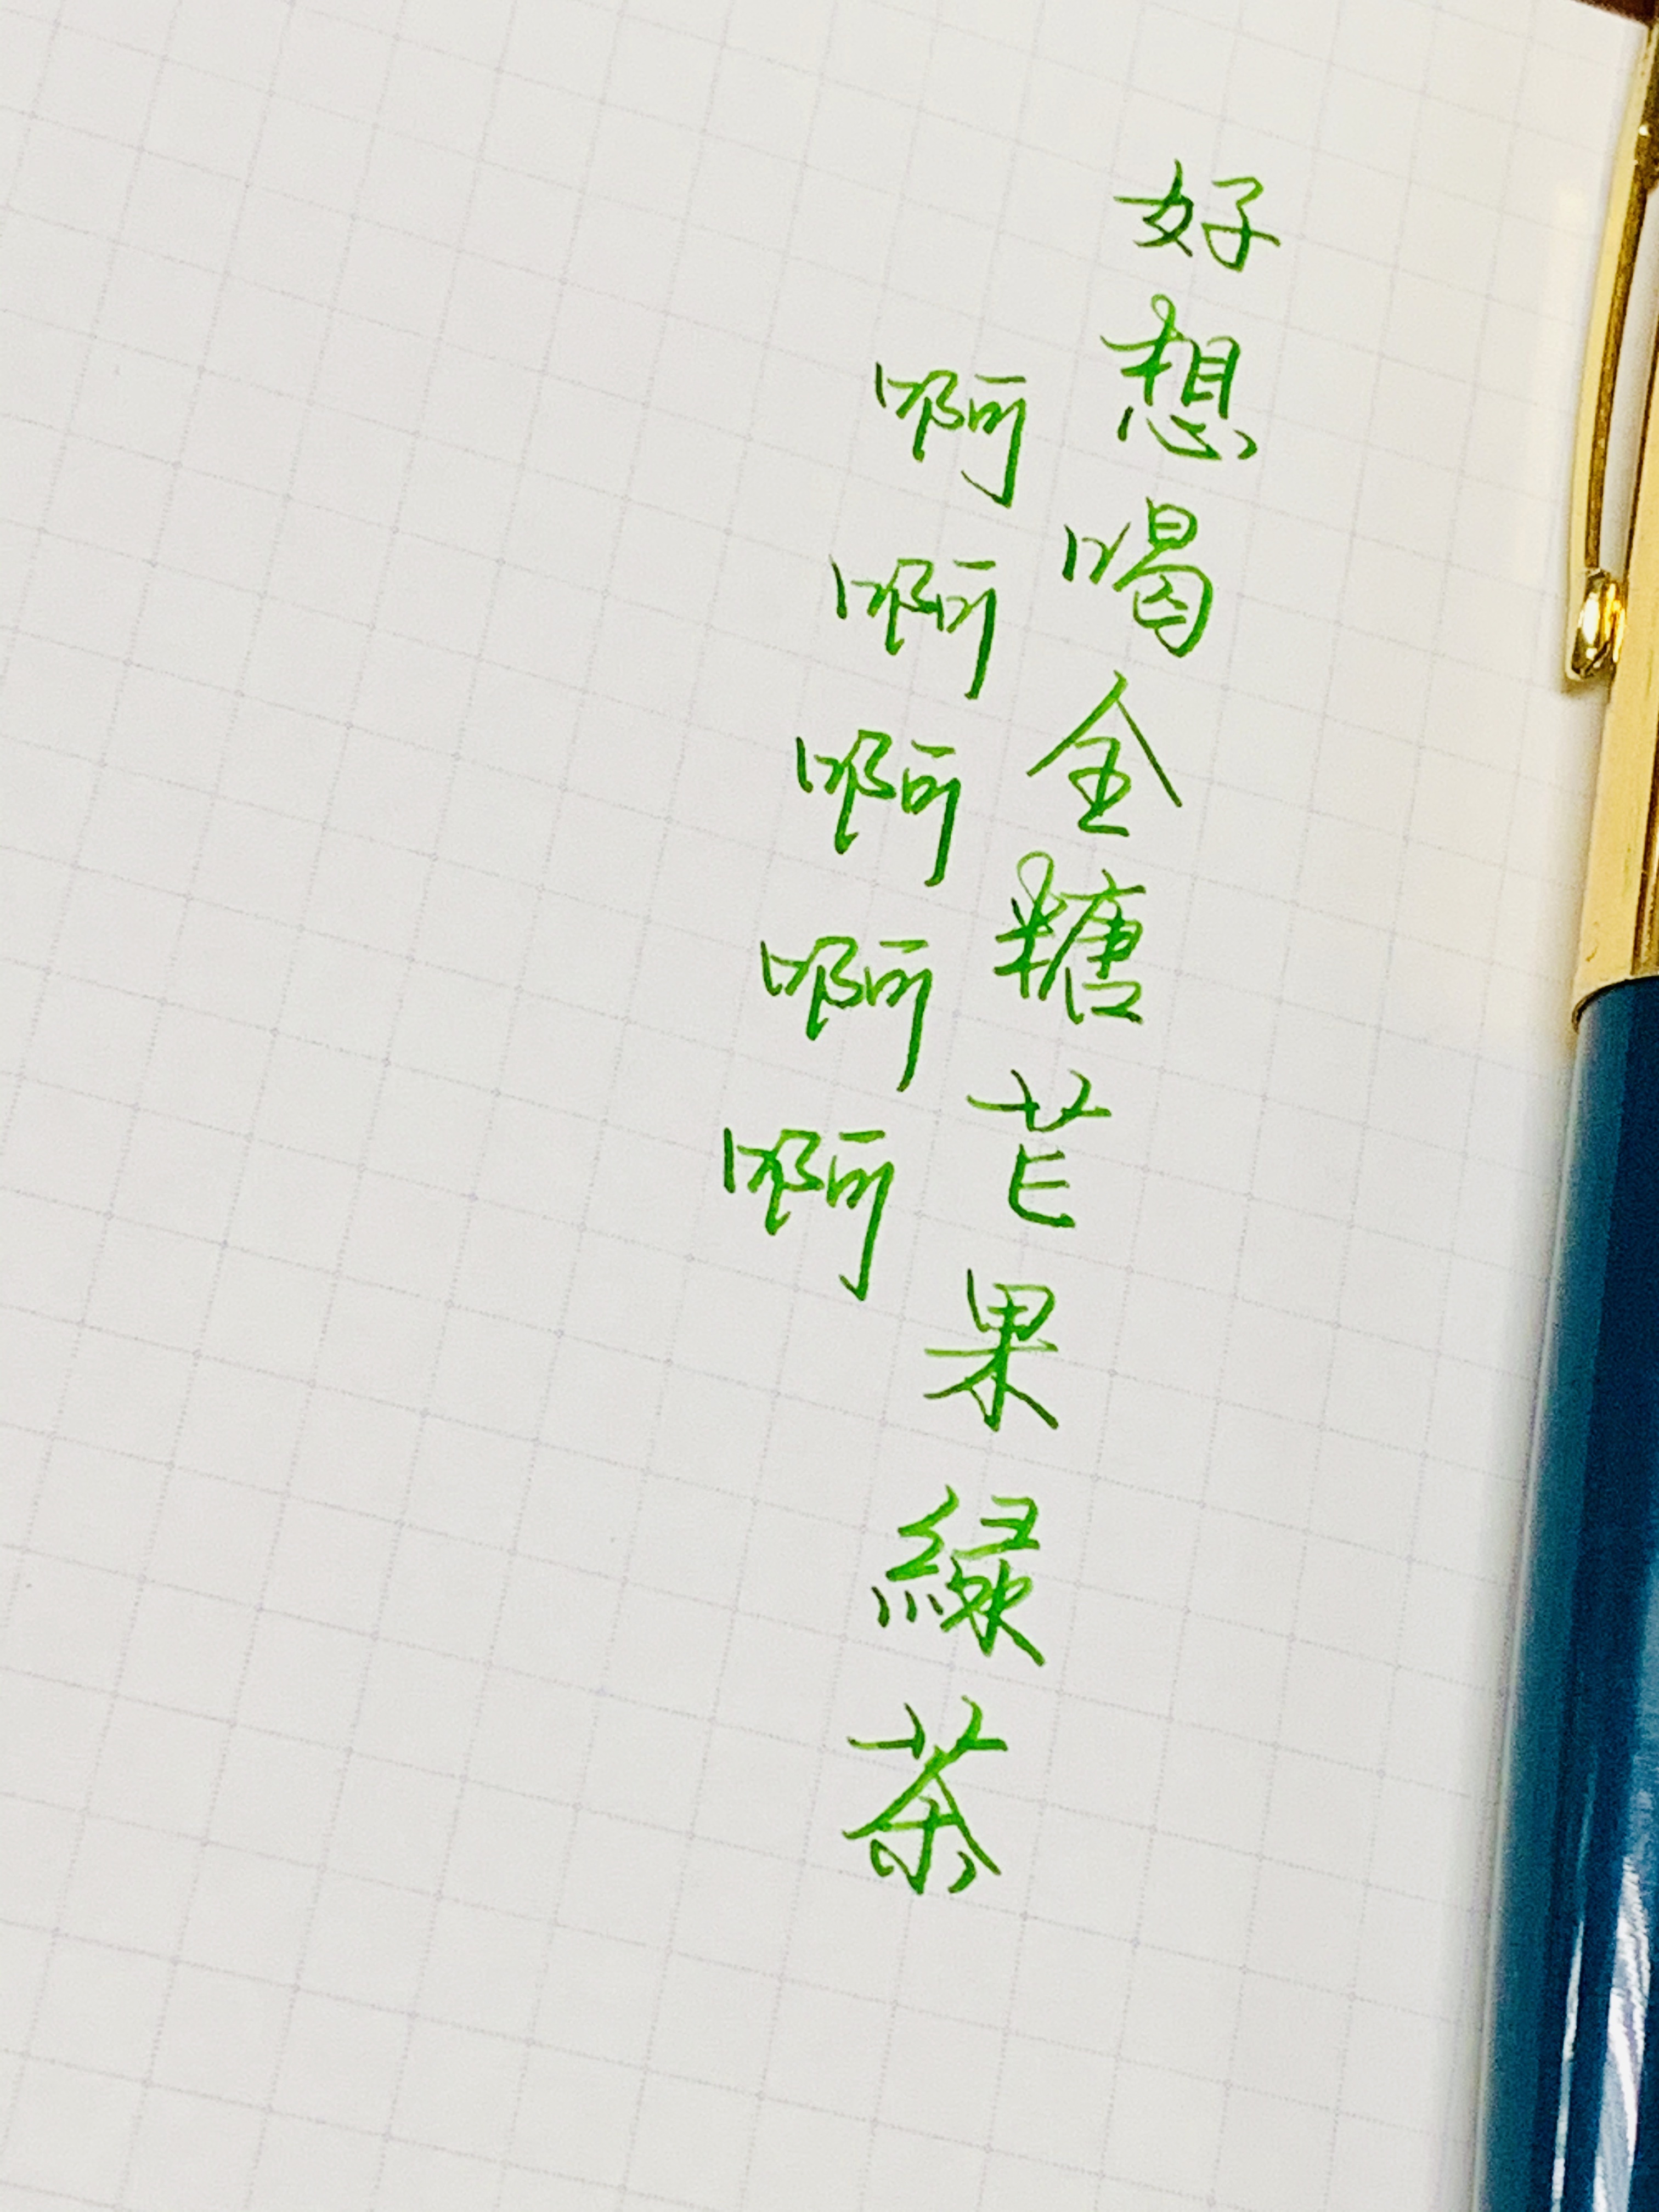 好想喝全糖芒果綠茶
啊啊啊啊啊